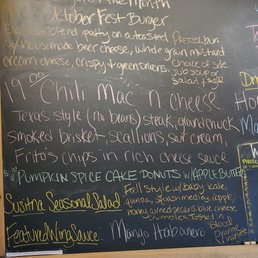 the Month
Oktoberfest Burger
blend patty on a toasted Pretzel bun
w/ housemade beer cheese, whole grain mustard
cream cheese, crispy + green onions. Choice of side
soup or salad
19.00 Chili Mac n cheese
Texas style (no beans) steak, ground chuck,
smoked brisket, scallions, sour cream,
Fritos chips in rich cheese sauce
PUMPKIN SPICE CAKE DONUTS w/ APPLE BUTTER
Susitna Seasonal Salad
Fall style w/ baby kale,
quinoa, squash medley, apple,
honey cured pecans, blue cheese
crumbles. Tossed in
Featured Wing Sauce
Mango Habanero